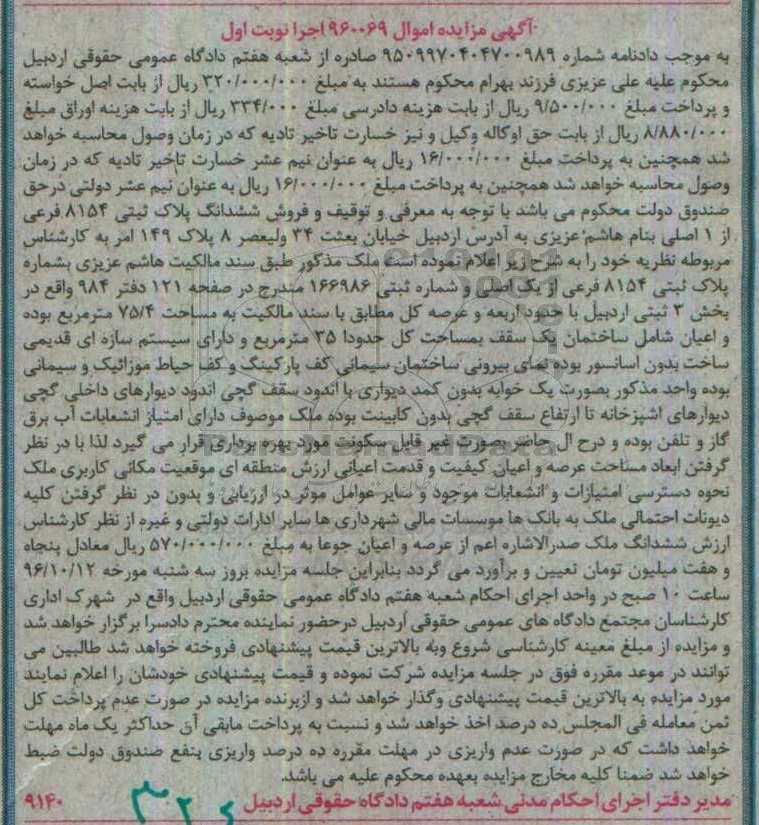 آگهی مزایده اموال ۹۶۰۰۶۹ اجرا نوبت اول
به موجب دادنامه شماره ۹۵۰۹۹۷۰۴۰۴۷۰۰۹۸۹ صادره از شعبه هفتم دادگاه عمومی حقوقی اردبیل
محکوم علیه علی عزیزی فرزند بهرام محکوم هستند به مبلغ ۳۲۰/۰۰۰/۰۰۰ ریال از بابت اصل خواسته
و پرداخت مبلغ ۹/۵۰۰/۰۰۰ ریال از بابت هزینه دادرسی مبلغ ۳۳۴/۰۰۰ ریال از بابت هزینه اوراق مبلغ
۸/۸۸۰/۰۰۰ ریال از بابت حق اوکاله وکیل و نیز خسارت تاخیر تادیه که در زمان وصول محاسبه خواهد
شد همچنین به پرداخت مبلغ ۱۶/۰۰۰/۰۰۰ ریال به عنوان نیم عشر خسارت تاخیر تادیه که در زمان
وصول محاسبه خواهد شد همچنین به پرداخت مبلغ ۱۶/۰۰۰/۰۰۰ ریال به عنوان نیم عشر دولتی درحق
صندوق دولت محکوم می باشد با توجه به معرفی و توقیف و فروش ششدانگ پلاک ثبتی ۸۱۵۴ فرعی
از ۱ اصلی بنام هاشم عزیزی به آدرس اردبیل خیابان بعثت ۳۴ ولیعصر ۸ پلاک ۱۴۹ امر به کارشناس
مربوطه نظریه خود را به شرح زیر اعلام نموده است ملک مذکور طبق سند مالکیت هاشم عزیزی بشماره
پلاک ثبتی ۸۱۵۴ فرعی از یک اصلی و شماره ثبتی ۱۶۶۹۸۶ مندرج در صفحه ۱۲۱ دفتر ۹۸۴ واقع در
بخش ۳ ثبتی اردبیل با حدود اربعه و عرصه کل مطابق با سند مالکیت به مساحت ۷۵/۴ مترمربع بوده
و اعیان شامل ساختمان یک سقف بمساحت کل حدودا ۳۵ مترمربع و دارای سیستم سازه ای قدیمی
ساخت بدون اسانسور بوده نمای بیرونی ساختمان سیمانی کف پارکینگ و کف حیاط موزائیک و سیمانی
بوده واحد مذکور بصورت یک خوابه بدون کمد دیواری با اندود سقف گچی اندود دیوارهای داخلی گچی
دیوارهای اشپزخانه تا ارتفاع سقف گچی بدون کابینت بوده ملک موصوف دارای امتیاز انشعابات آب برق
گاز و تلفن بوده و درح ال حاضر بصورت غیر قابل سکونت مورد بهره برداری قرار می گیرد لذا با در نظر
گرفتن ابعاد مساحت عرصه و اعیان کیفیت و قدمت اعیانی ارزش منطقه ای موقعیت مکانی کاربری ملک
نحوه دسترسی امتیازات و انشعابات موجود و سایر عوامل موثر در ارزیابی و بدون در نظر گرفتن کلیه
دیونات احتمالی ملک به بانک ها موسسات مالی شهرداری ها سایر ادارات دولتی و غیره از نظر کارشناس
ارزش ششدانگ ملک صدرالاشاره اعم از عرصه و اعیان جوعا به مبلغ ۵۷۰/۰۰۰/۰۰۰ ریال معادل پنجاه
و هفت میلیون تومان تعیین و برآورد می گردد بنابراین جلسه مزایده بروز سه شنبه مورخه ۹۶/۱۰/۱۲
ساعت ۱۰ صبح در واحد اجرای احکام شعبه هفتم دادگاه عمومی حقوقی اردبیل واقع در شهرک اداری
کارشناسان مجتمع دادگاه های عمومی حقوقی اردبیل درحضور نماینده محترم دادسرا برگزار خواهد شد
و مزایده از مبلغ معینه کارشناسی شروع وبه بالاترین قیمت پیشنهادی فروخته خواهد شد طالبین می
توانند در موعد مقرره فوق در جلسه مزایده شرکت نموده و قیمت پیشنهادی خودشان را اعلام نمایند
مورد مزایده به بالاترین قیمت پیشنهادی وگذار خواهد شد و ازبرنده مزایده در صورت عدم پرداخت کل
ثمن معامله فی المجلس ده درصد اخذ خواهد شد و نسبت به پرداخت مابقی آن حداکثر یک ماه مهلت
خواهد داشت که در صورت عدم واریزی در مهلت مقرره ده درصد واریزی بنفع صندوق دولت ضبط
خواهد شد ضمنا کلیه مخارج مزایده بعهده محکوم علیه می باشد.
مدیر دفتر اجرای احکام مدنی شعبه هفتم دادگاه حقوقی اردبیل ۹۱۴۰